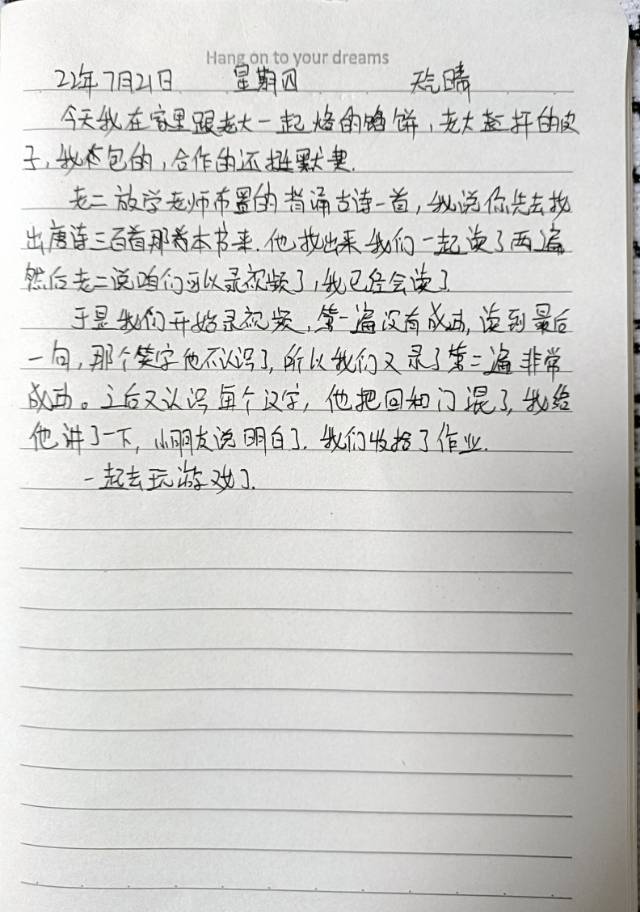 Hang on to your dreams
22年7月21日 星期四 天气晴
今天我在家里跟老大一起烙的馅饼,老大擀的皮
子,我来包的,合作的还挺默契.
老二放学老师布置的背诵古诗一首,我说你先去找
出唐诗三百首那本书来.他找出来我们一起读了两遍
然后老二说咱们可以录视频了,我已经会读了.
于是我们开始录视频,第一遍没有成功,读到最后
一句,那个笑字他不认识了,所以我们又录了第二遍非常
成功。之后又认识每个汉字,他把回和门混了,我给
他讲了一下,小朋友说明白了.我们收拾了作业.
一起去玩游戏了.